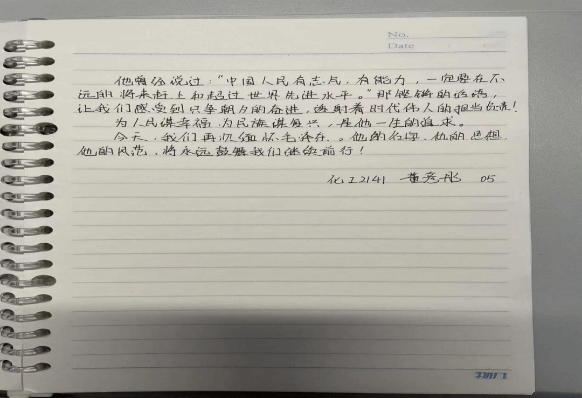 No.
Date
他嘴徐说过:“中国人民有志气,有能力,一定要在不
远的将来赶上和超过世界先进水平。”那铿锵的话语,
让我们感受到只争朝夕的奋进,透射着时代伟人的担当与责!
为人民谋幸福,为民族谋复兴,是他一生的追求。
今天,我们再次缅怀毛泽东。他的名字,他的思想,
他的风范,将永远鼓舞我们继续前行!
化工2141 黄彦彤 05